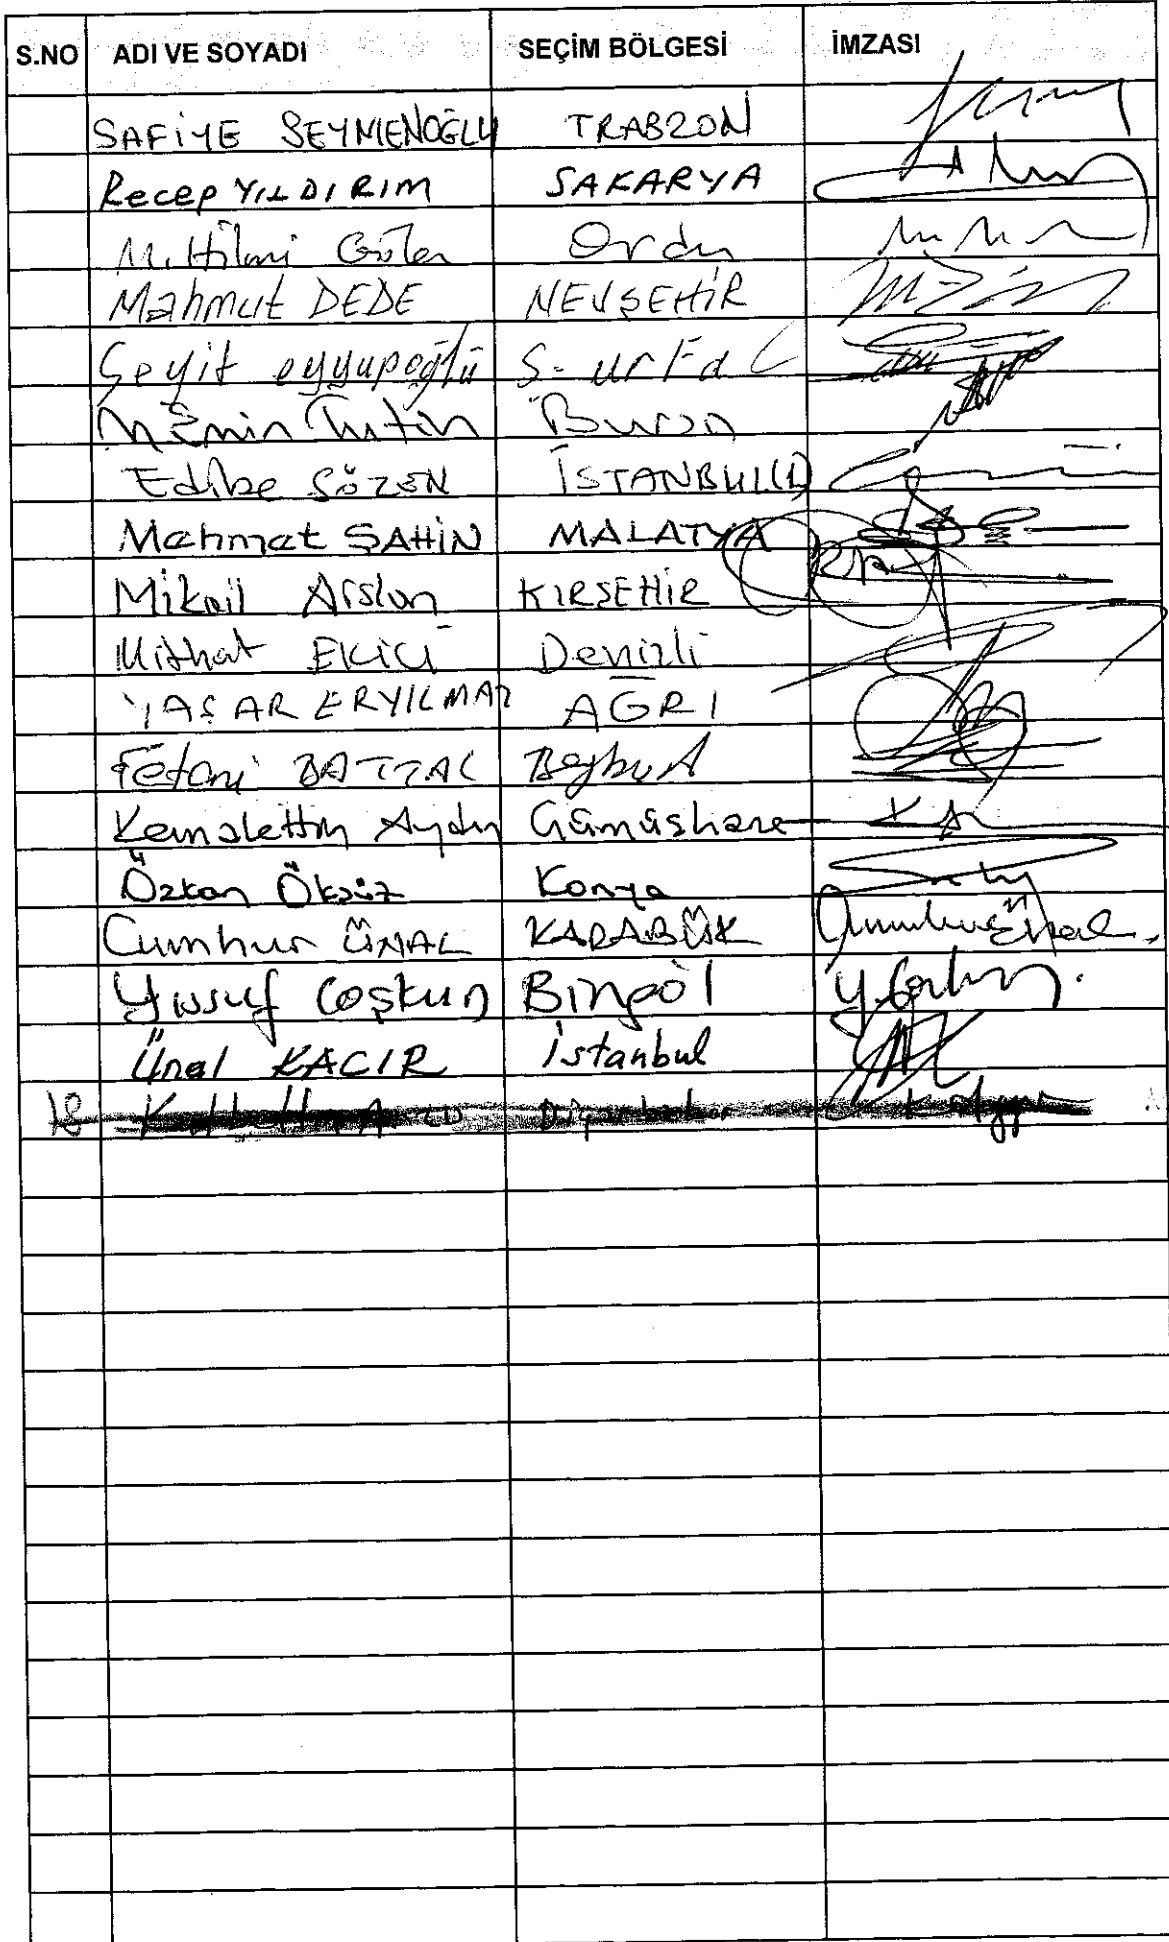 S.NO ADI VE SOYADI SEÇİM BÖLGESİ İMZASI
SAFİYE SEYMENOĞLU TRABZON
Recep YILDIRIM SAKARYA
M. Hilmi Güler Ordu
Mahmut DEDE NEVŞEHİR
Seyit eyyupoğlu Ş-urfa
M Emin Tutan Bursa
Edibe SÖZEN İSTANBUL(1)
Mehmet ŞAHİN MALATYA
Mikail Arslan KIRŞEHİR
Mithat EKİCİ Denizli
YAŞAR ERYILMAZ AĞRI
Fetani BATTAL Bayburt
Kemalettin Aydın Gümüşhane
Özkan Öksüz Konya
Cumhur ÜNAL KARABÜK Cumhur Ünal
Yusuf Coşkun Bingöl Y. Coşkun
Ünal KACIR İstanbul
18